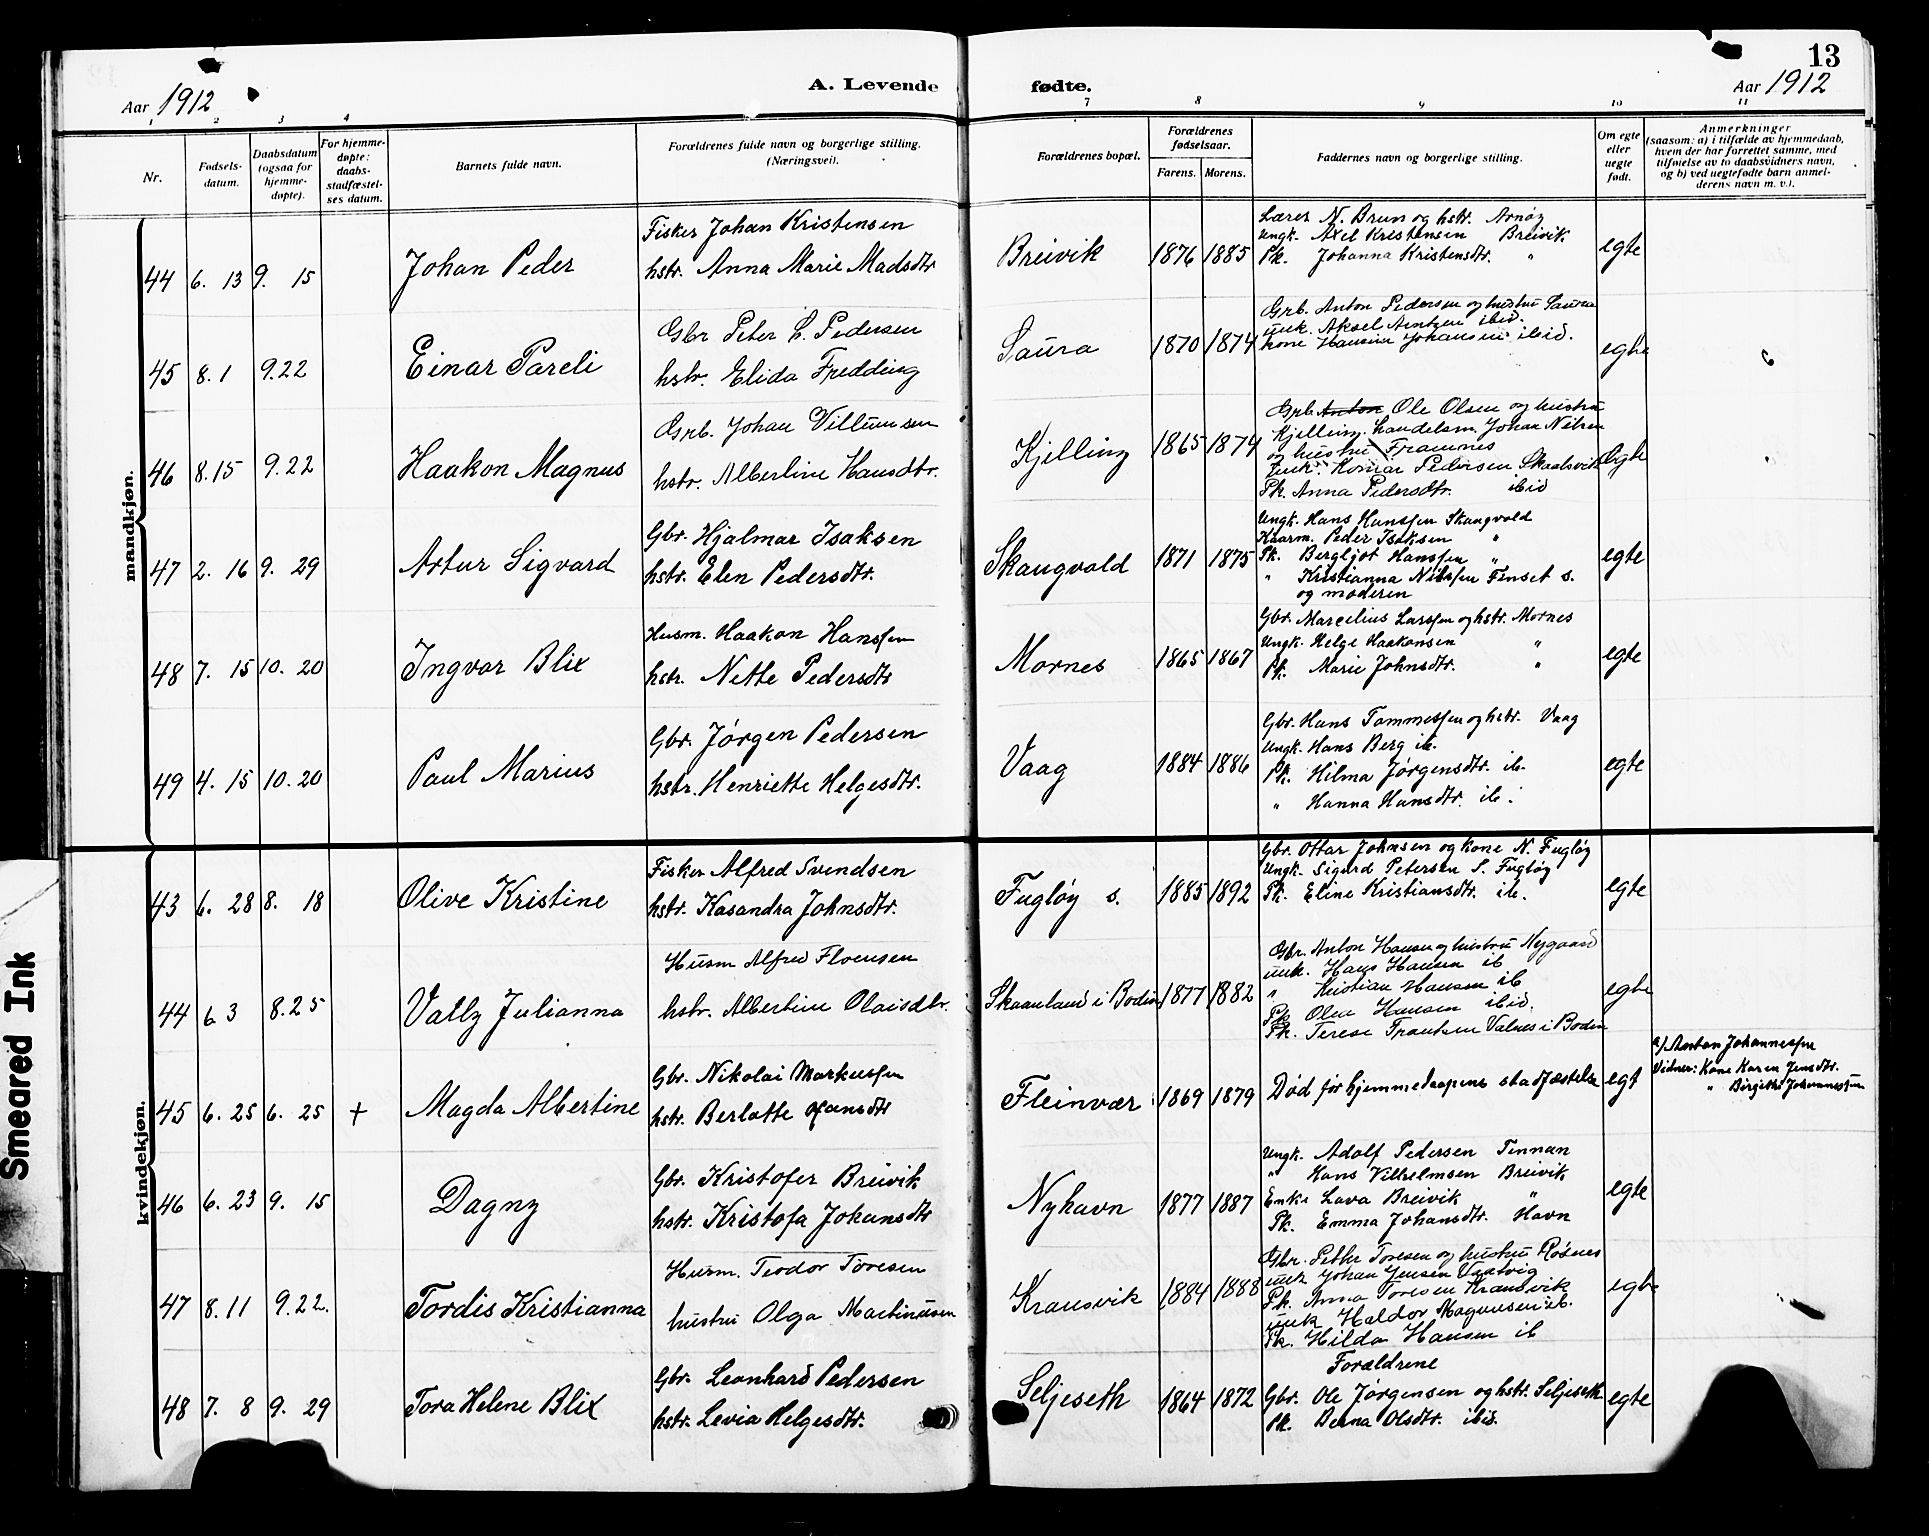 13
Aar 1912
A. Levende fødte.
Aar 1912
1 2 3 4 7 8 9 10 11
Nr.
Fødsels-
datum.
Daabsdatum
(ogsaa for
hjemme-
døpte).
For hjemme-
døpte:
daabs-
stadfæstel-
ses datum.
Barnets fulde navn.
Forældrenes fulde navn og borgerlige stilling.
(Næringsvei).
Forældrenes bopæl.
Forældrenes
fødselsaar.
Farens. Morens.
Faddernes navn og borgerlige stilling.
Om egte
eller
uegte
født.
Anmerkninger
(saasom: a) i tilfælde av hjemmedaab,
hvem der har forrettet samme, med
tilføielse av to daabsvidners navn,
og b) ved uegtefødte barn anmel-
derens navn m. v.).
mandkjøn.
44 6. 13 9. 15 Johan Peder
Fisker Johan Kristensen
hstr. Anna Marie Madsdtr
Breivik 1876 1885
Lærer N. Brun og hstr. Arnøy
Ungk. Axel Kristensen Breivik
Pk. Johanna Kristensdtr. "
egte
45 8. 1 9.22 Einar Pareli
Gbr Peter C. Pedersen
hstr. Elida Fredding
Saura 1870 1874
Grb. Anton Pedersen og hustru Saura
unk. Aksel Arntzen ibid.
kone Hansine Johansen ibid.
egte
46 8.15 9.22 Haakon Magnus
Grb. Johan Villumsen
hstr. Albertine Hansdtr.
Kjelling 1865 1874
Grb. Anton Ole Olsen og hustru
Kjelling. Handelsm. Johan Nilsen
og hustru Framnes
Unk. Konrar Pedersen Skaalsvik
Pk. Anna Pedersdtr. ibid
egte
47 2. 16 9. 29 Artur Sigvard
Gbr. Hjalmar Isaksen
hstr. Elen Pedersdtr.
Skaugvold 1871 1875
Ungk. Hans Hanssen Skaugvold
Kaarm. Peder Isaksen "
Pk. Bergljot Hanssen "
" Kristianna Nilssen Finset s.
og moderen
egte
48 7. 15 10. 20 Ingvar Blix
Husm. Haakon Hanssen
hstr. Nette Pedersdtr
Mornes 1865 1867
Gbr. Marcelius Larssen og hstr. Mornes
Ungk. Helge Haakonsen "
Pk. Marie Johnsdtr. "
egte
49 4. 15 10. 20 Paul Marius
Gbr. Jörgen Pedersen
hstr. Henriette Helgesdtr.
Vaag 1884 1886
Gbr. Hans Tommessen og hstr. Vaag
Ungk. Hans Berg ib.
Pk. Hilma Jørgensdtr. ib.
" Hanna Hansdtr. ib.
egte
kvindekjøn.
43 6. 28 8. 18 Olive Kristine
Fisker Alfred Svendsen
hstr. Kasandra Johnsdtr.
Fugløy s. 1885 1892
Gbr. Ottar Johnsen og kone N. Fugløy
Ungk. Sigurd Petersen S. Fugløy
Pk. Eline Kristiansdtr. ib.
egte
44 6 3 8.25 Vally Julianna
Husm Alfred Floensen
hstr. Albertine Olaisdtr.
Skaanland i Bodin 1877 1882
Gbr. Anton Hansen og hustru Nygaard
unk. Hans Hansen ib
" Kristian Hansen ib
Pk Olea Hansen ibid.
Pk. Terese Frantsen Valnes i Bodin
egte
45 6. 25 6. 25 + Magda Albertine
Gbr. Nikolai Markussen
hstr. Berlotte Hansdtr
Fleinvær 1869 1879
Død før hjemmedaapens stadfæstelse
egt
a/ Anton Johannessen
Vidner: Kone Karen Jensdtr.
" Birgitte Johannessen
46 6. 23 9. 15 Dagny
Gbr. Kristofer Breivik
hstr. Kristofa Johansdtr
Nyhavn 1877 1887
Ungk. Adolf Pedersen Tennan
" Hans Vilhelmsen Breivik
Enke Lava Breivik "
Pk. Emma Johansdtr. Havn
egte
47 8. 11 9.22. Tordis Kristianna
Husm. Teodor Toresen
hustru Olga Martinusen
Kransvik 1884 1888
Gbr. Petter Toresen og hustru Røsnes
unk Johan Jensen Vaatvig
Pk. Anna Toresen Kransvik
unk Haldor Magnusen ib.
Pk. Hilda Hansen ib
egte
48 7. 8 9. 29 Tora Helene Blix
Gbr. Leonhard Pedersen
hstr. Levia Helgesdtr.
Seljeseth 1864 1872
Forældrene
Gbr. Ole Jørgensen og hstr. Seljeseth
Pk. Berna Olsdtr. ibid.
egte
Smeared Ink